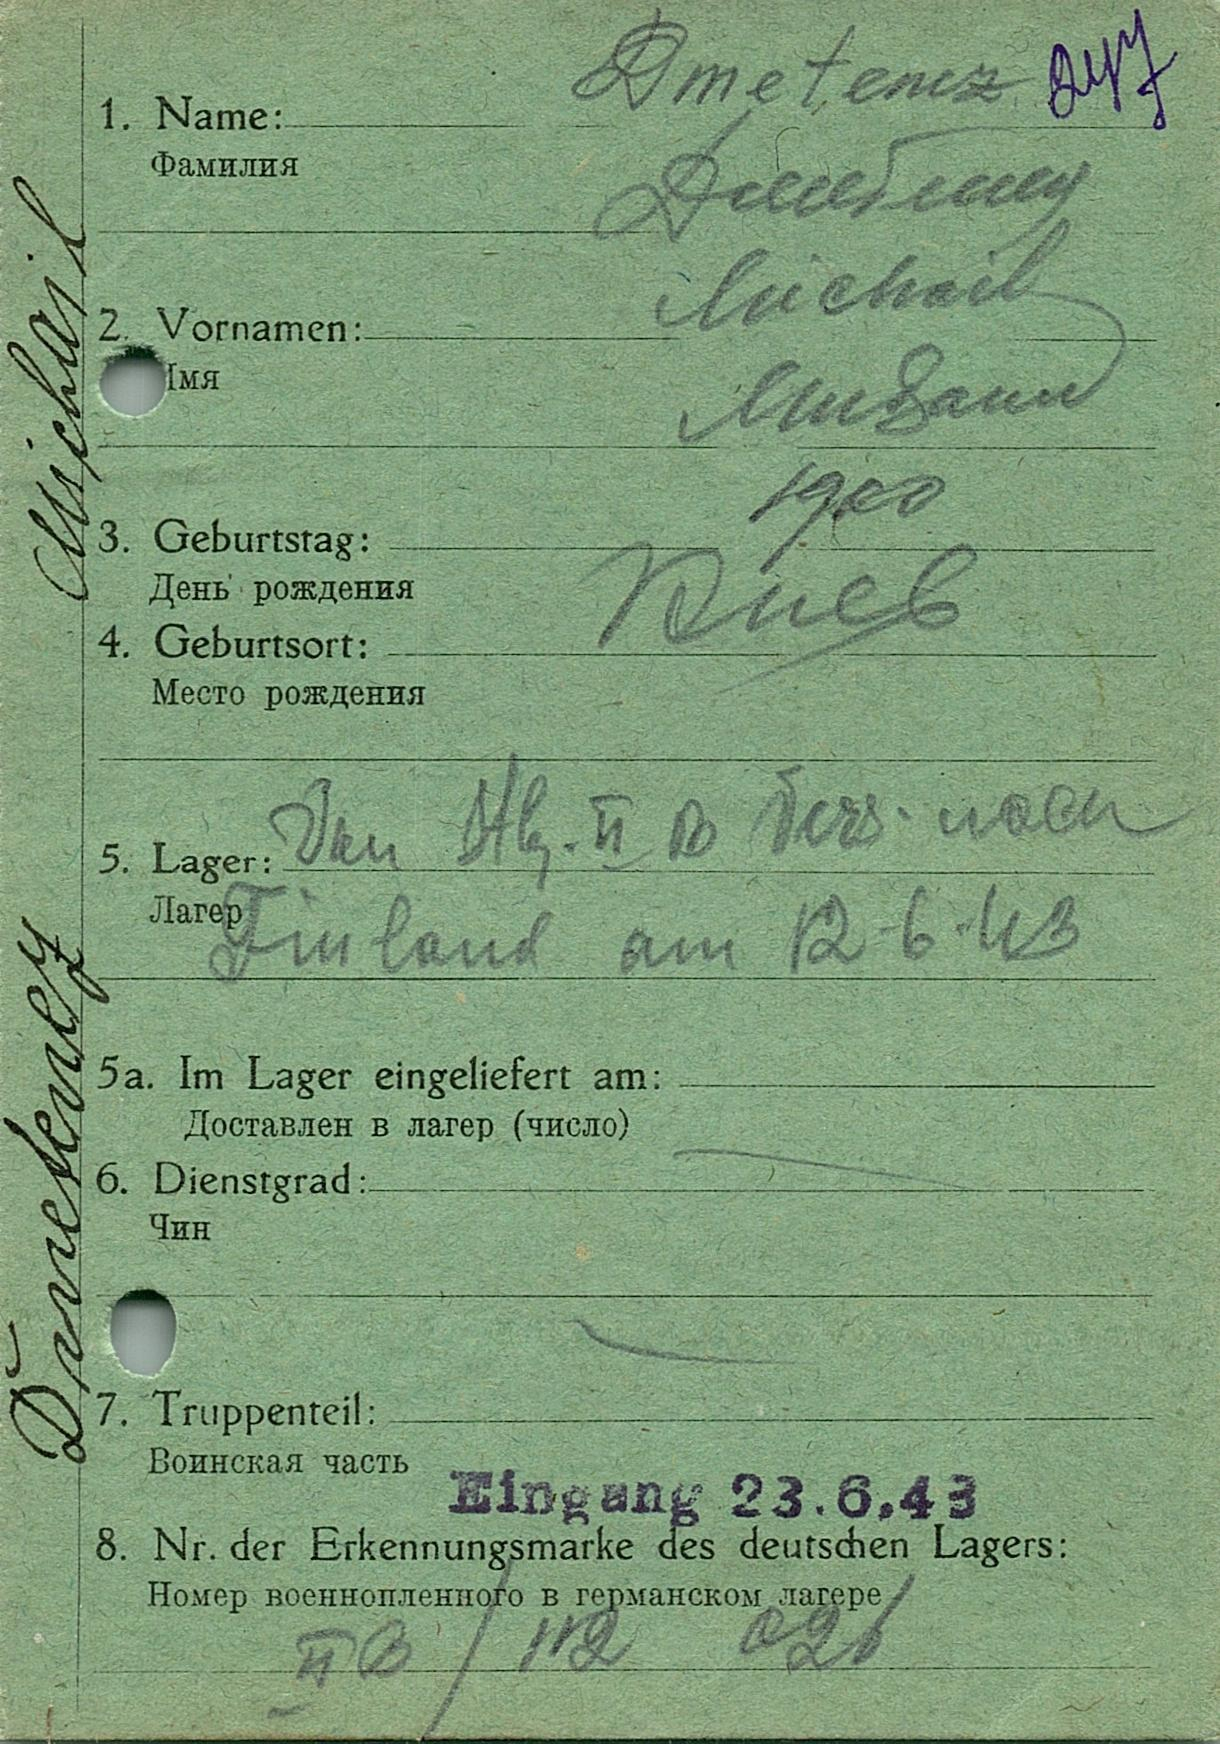 Dmetenz
1. Name:
Фамилия
Michail
2. Vornamen:
Имя
Михаил
1920
3. Geburtstag:
День рождения
Киев
4. Geburtsort:
Место рождения
Von Stlg. II B Vers. nach
5. Lager:
Лагер
Finland am 12.6.43
5a. Im Lager eingeliefert am:
Доставлен в лагер (число)
6. Dienstgrad:
Чин
7. Truppenteil:
Воинская часть
Eingang 23.6.43
8. Nr. der Erkennungsmarke des deutschen Lagers:
Номер военнопленного в германском лагере
II B / 112 026
Michail